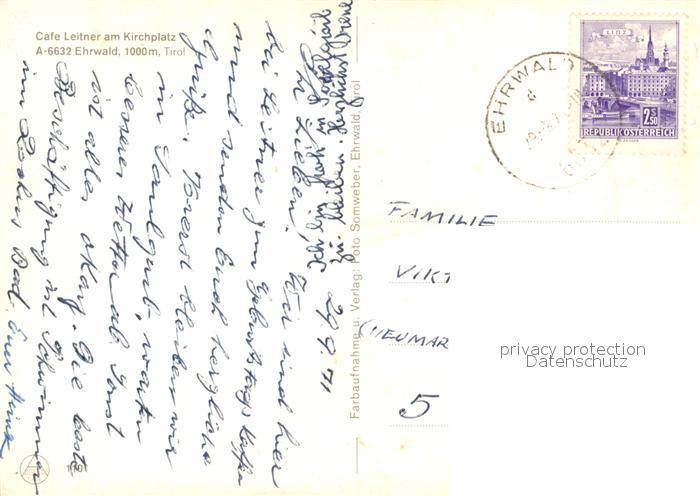 Cafe Leitner am Kirchplatz
A-6632 Ehrwald, 1000m, Tirol
29.9.71
Ihr Lieben, Wir sind hier
bei Leitner zum Geburtstagskaffee
und senden Euch herzliche
Grüße. Vorerst bleiben wir
im Saulgrub, warten
besseres Wetter ab. Sonst
ist alles okay. Die beste
Beschäftigung ist Schwimmen
im Bad. Euer Heinz
Ich in Saulgrub
zu bleiben. Herzlichst Irene
Farbaufnahme u. Verlag: Foto Somweber, Ehrwald, Tirol
1101
LINZ
2.50
REPUBLIK ÖSTERREICH
EHRWALD
FAMILIE
VIKT
(NEUMAR
5
privacy protection
Datenschutz